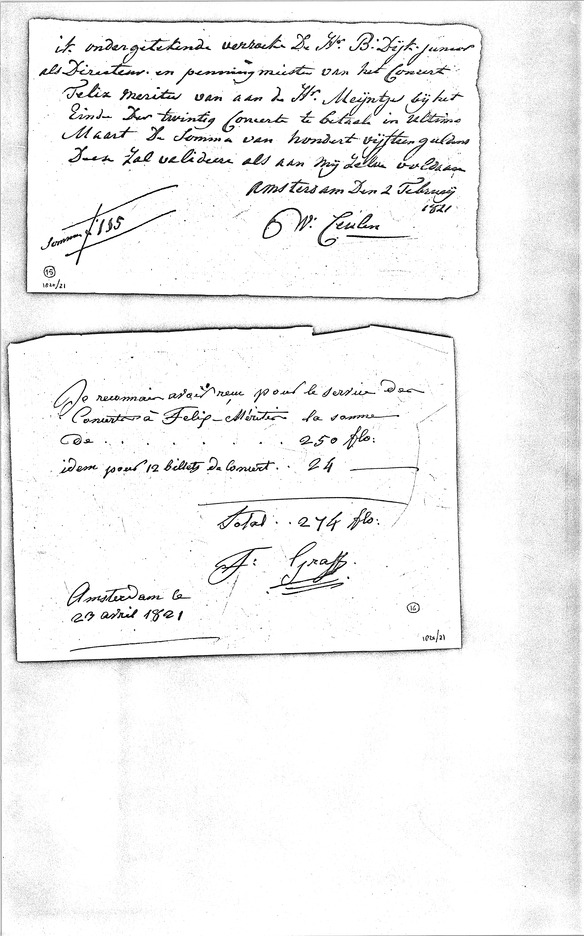 ik ondergetekende verzoeke De Hr. B: Dijk junior
als Directeur en penningmeester van het Concert
Felix Meritus van aan de Hr. Meijntje bij het
Einde Der twintig Concerte te betaale in ultimo
Maart De Somma van hondert vijftien guldens
Deese Zal valideere als aan mij Zelve voldaan
Amsterdam Den 2 Februarij
1821
W: Ceulen
Somma f 115
15
1820/21
Je reconnais avoir reçu pour le service des
Concerts à Felix-Méritis la somme
de . . . . . . . 250 flo:
idem pour 12 billets de Concert . . 24
Total . . 274 flo:
F: Graff.
Amsterdam le
23 avril 1821
16
1820/21